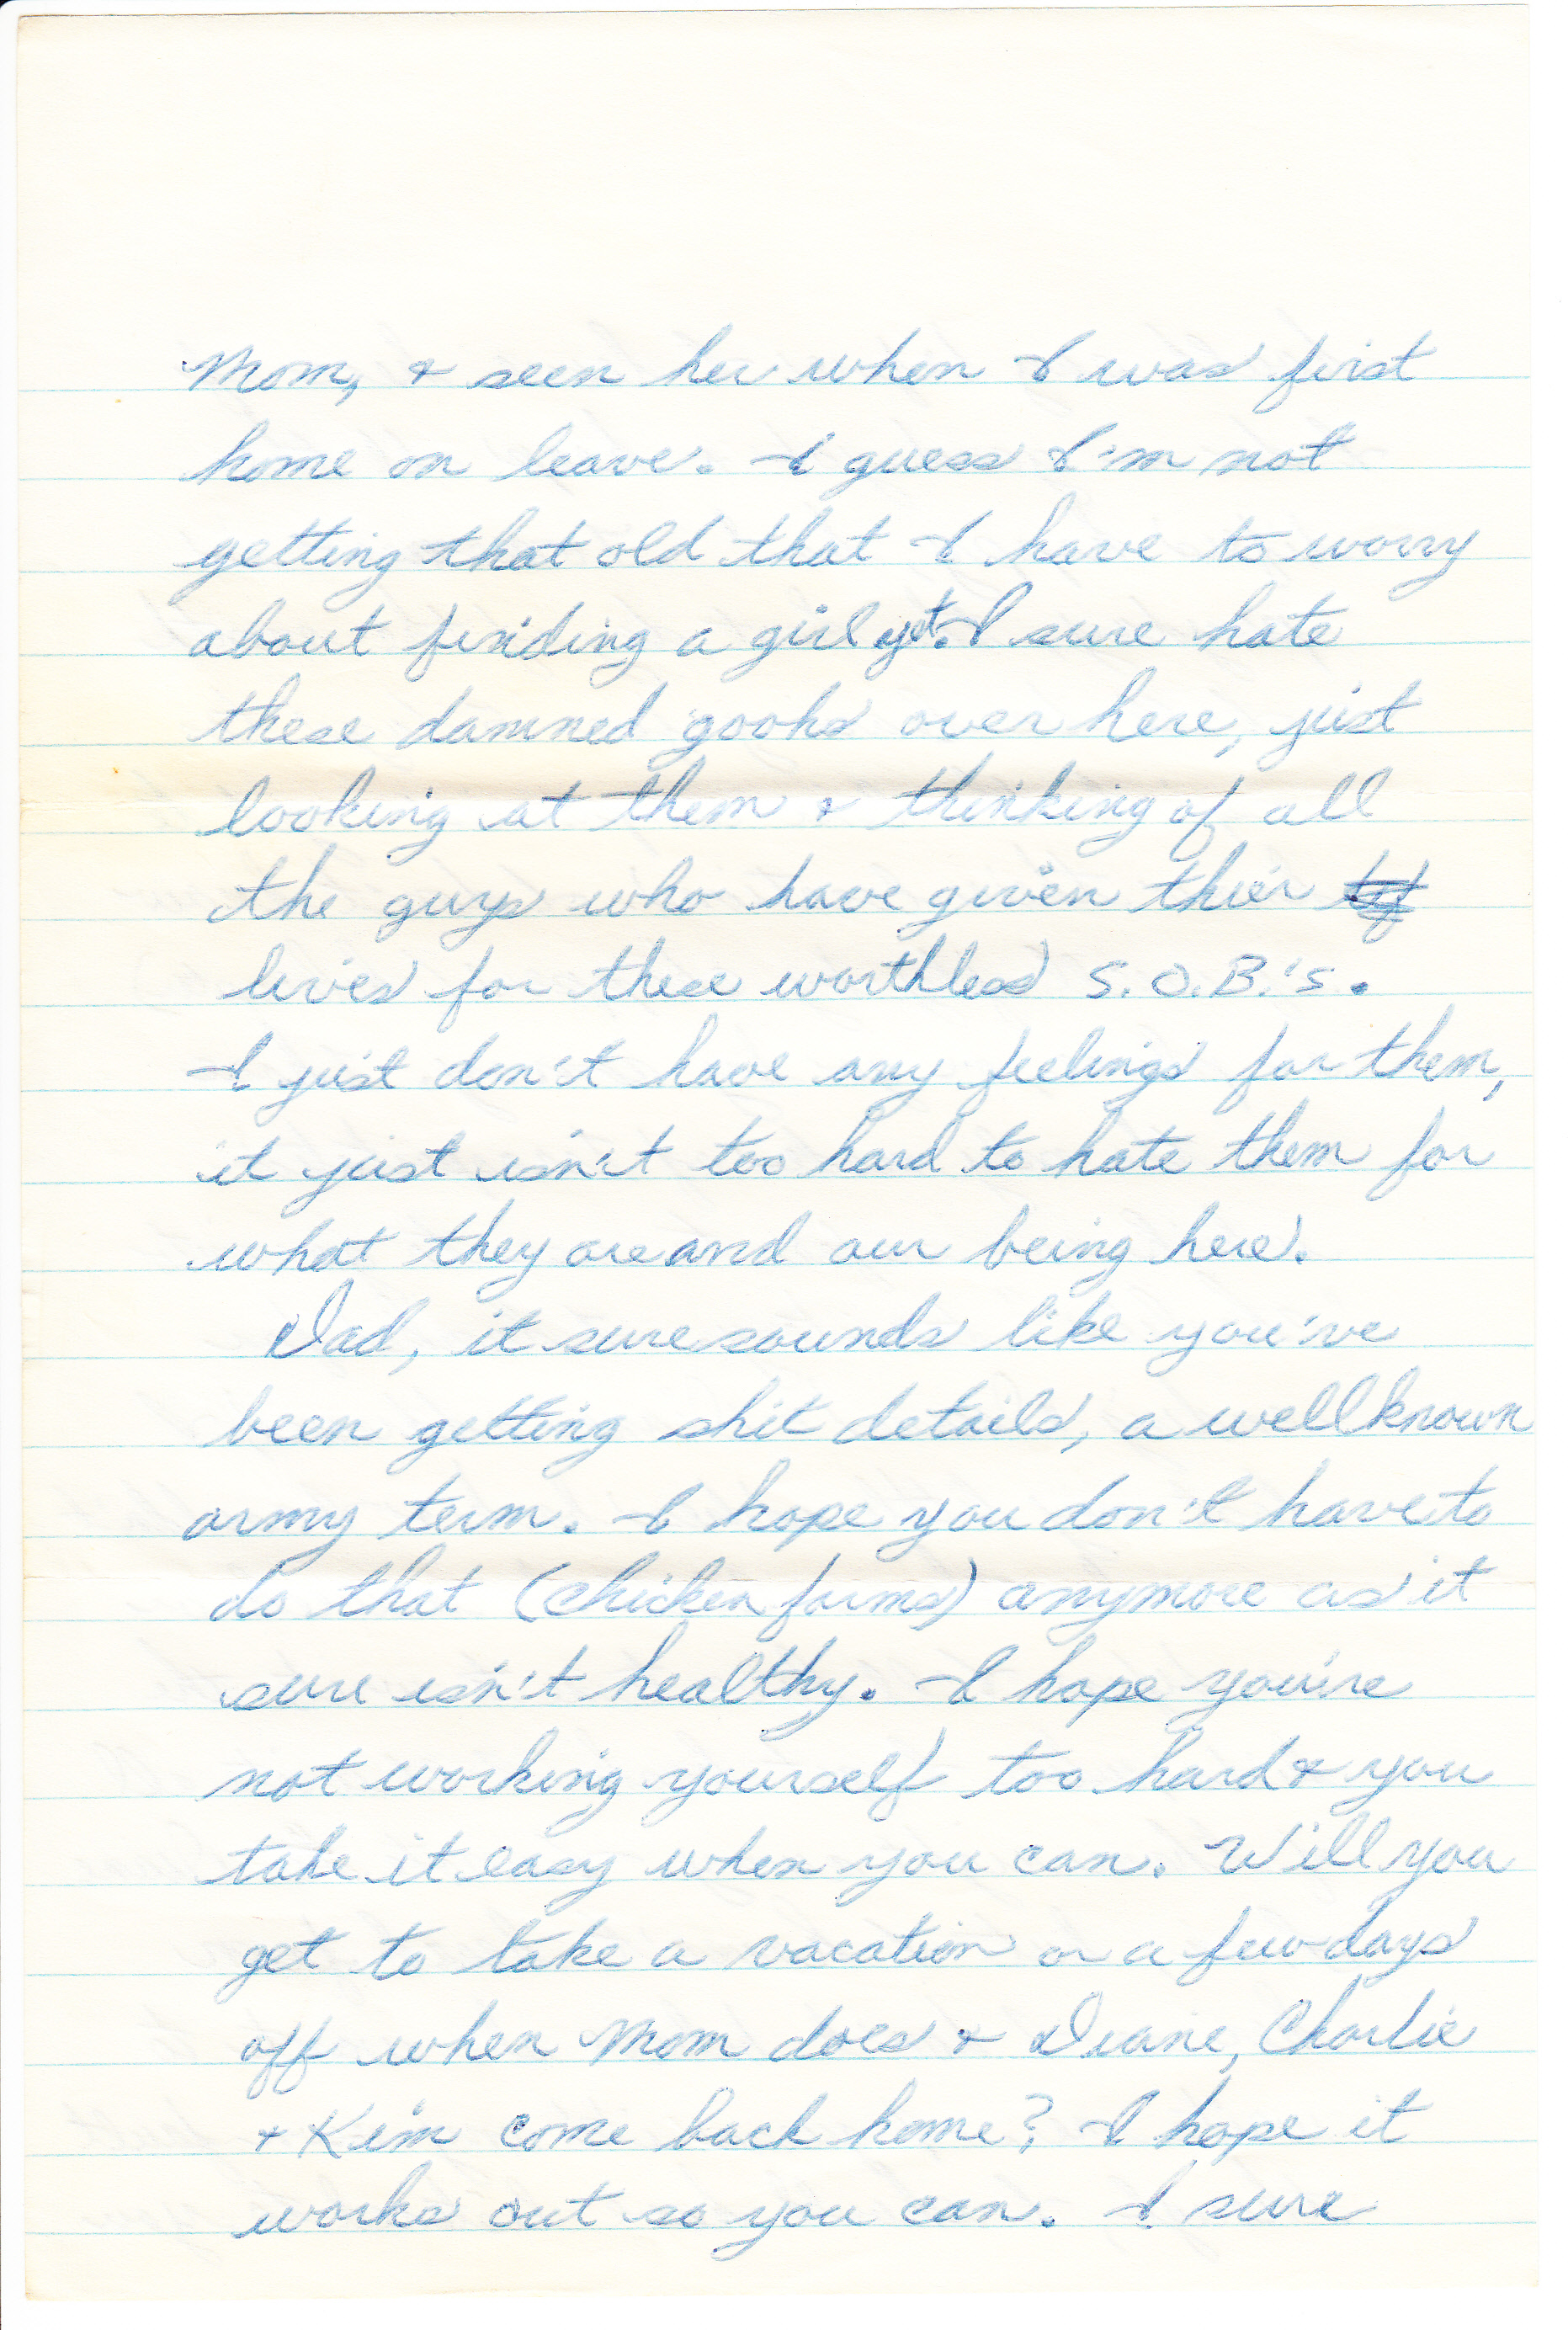 Mom, & seen her when I was first
home on leave. I guess I'm not
getting that old that I have to worry
about finding a girl yet. I sure hate
these damned gooks over here, just
looking at them & thinking of all
the guys who have given thier
lives for these worthless S.O.B.'s.
I just don't have any feelings for them,
it just isn't too hard to hate them for
what they are and our being here.
Dad, it sure sounds like you've
been getting shit details, a well known
army term. I hope you don't have to
do that (chicken farms) anymore as it
sure isn't healthy. I hope you're
not working yourself too hard & you
take it easy when you can. Will you
get to take a vacation or a few days
off when Mom does & Diane, Charlie
& Kim come back home? I hope it
works out so you can. I sure